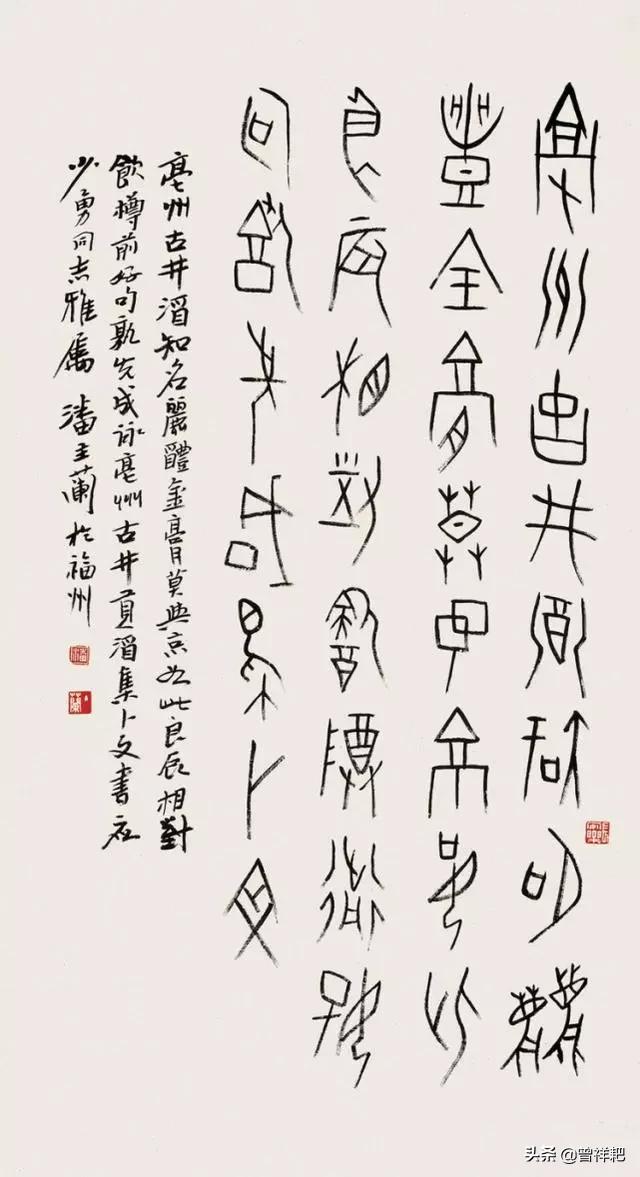 亳州古井酒知名麗
醴金膏莫與京如此
良辰相對飲樽前好
句孰先成集卜文
亳州古井酒知名麗醴金膏莫與京如此良辰相對
飲樽前好句孰先成詠亳州古井貢酒集卜文書應
少勇同志雅屬潘主蘭於福州
头条 @曾祥耙